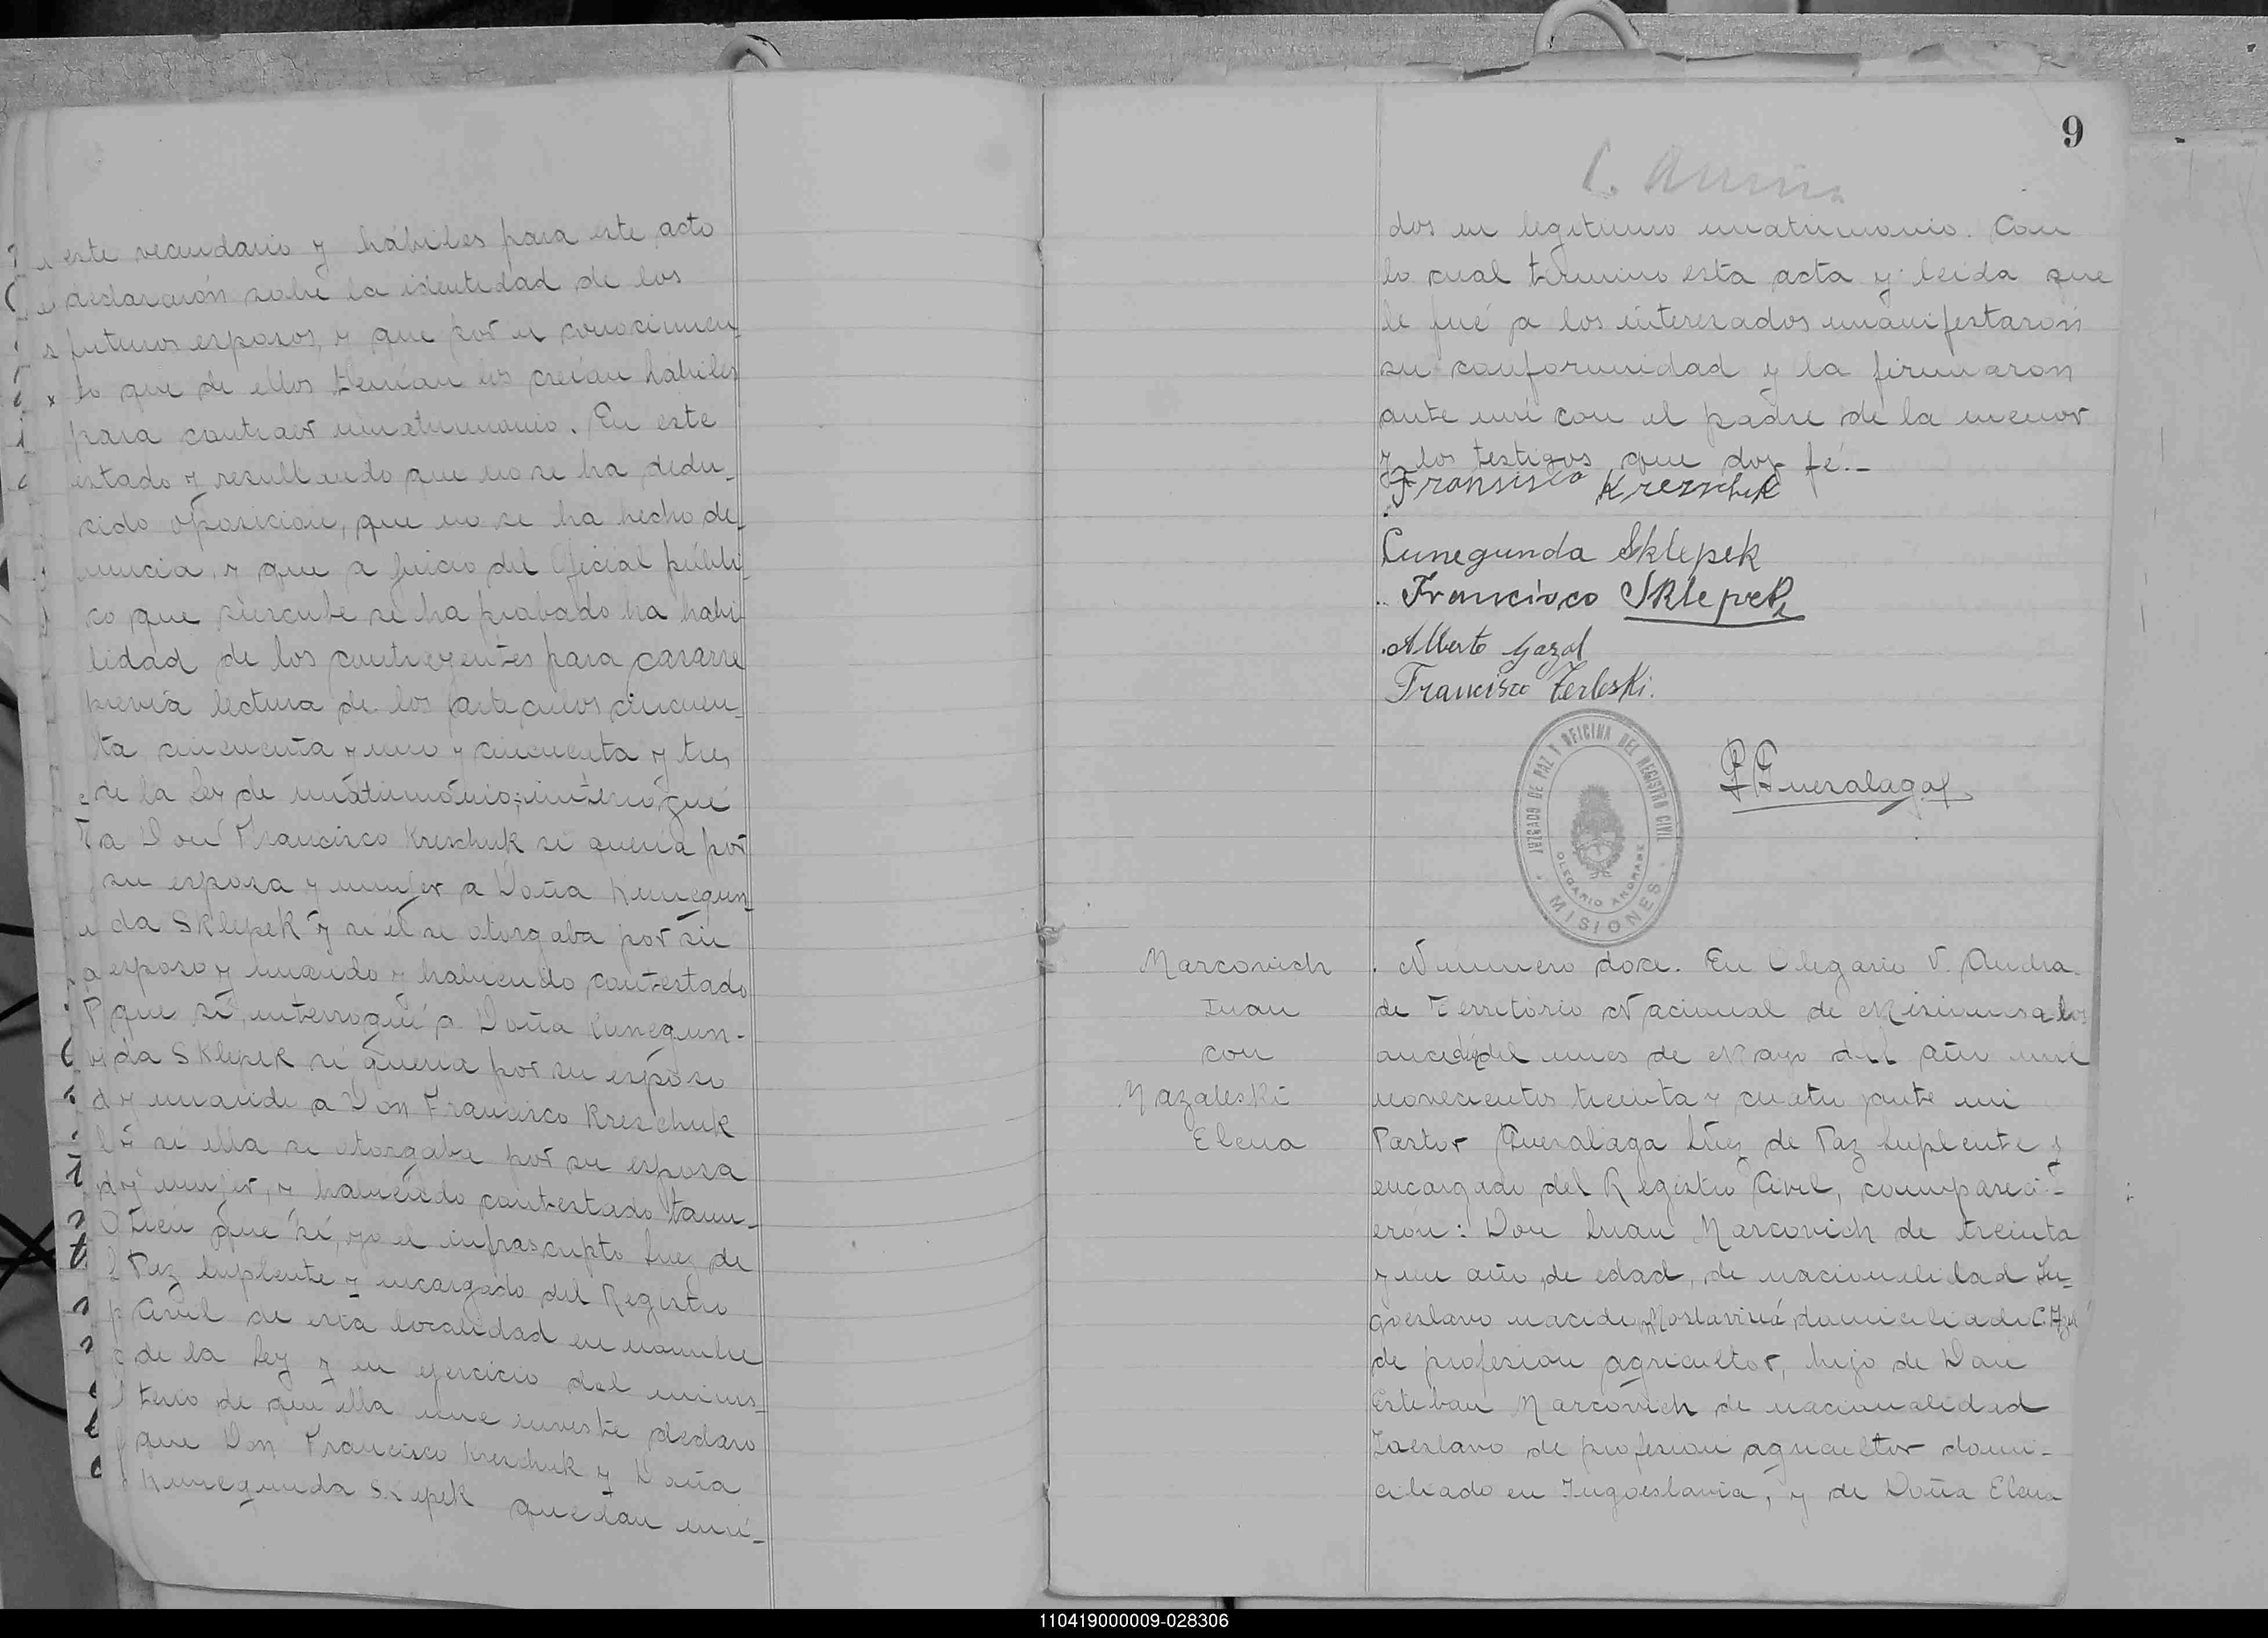 este vecindario y hábiles para este acto
declararón sobre la identidad de los
futuros esposos, y que por el conocimien-
to que de ellos tienían los creían hábiles
para contraer matrimonio. En este
estado y resultando que no se ha dedu-
cido oposicion, que no se ha hecho de-
nuncia, y que a juicio del Oficial públi-
co que suscribe se ha probado ha habi-
lidad de los contrayentes para casarse
previa lectura de los artículos cincuen-
ta cincuenta y uno y cincuenta y tres
de la Ley de matrimonio; interrogué
a Don Francisco Kreschuk si quería por
su esposa y mujer a Doña Kunegun-
da Sklepek y si él se otorgaba por su
esposo y marido y habiendo contestado
que sí, interrogué a Doña Cunegun-
da Sklepek si queria por su esposo
y marido a Don Francisco Kreschuk
y si ella se otorgaba por su esposa
y mujer, y habiendo contestado tam-
bien que sí, yo el infrascripto Juez de
Paz Suplente y encargado del Registro
Civil de esta localidad en nombre
de la Ley y en ejercicio del minis-
terio de que ella me inviste declaro
que Don Francisco Kreschuk y Doña
Kunegunda Sklepek quedan uni-
9
dos en legitimo matrimonio. Con
lo cual termino esta acta y leida que
le fué a los interesados manifestarón
su conformidad y la firmaron
ante mí con el padre de la menor
y los testigos que doy fé.-
Fransisco Kreschuk
Cunegunda Sklepek
Francisco Sklepek
Alberto Gazal
Francisco Zerleski.
P Gueralaga
JUZGADO DE PAZ Y OFICINA DEL REGISTRO CIVIL
OLEGARIO ANDRADE
MISIONES
Marcovich
Juan
con
Mazaleski
Elena
Número doce. En Olegario V. Andra-
de Territorio Nacional de Misiones a los
once del mes de Mayo del año mil
novecientos treinta y cuatro ante mi
Pastor Gueralaga Juez de Paz Suplente y
encargado del Registro Civil, comparecí-
erón: Don Juan Marcovich de treinta
y un año de edad, de nacionalidad Ju-
goeslavo nacido domiciliado C. Azul
de profesion agricultor, hijo de Don
Esteban Marcovich de nacionalidad
de profesion agricultor domi-
ciliado en Jugoeslavia, y de Doña Elena
110419000009-028306